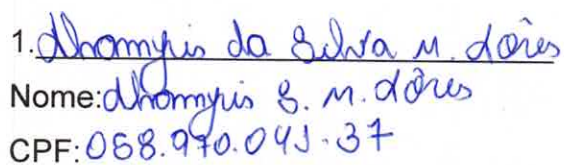 1. Dhomyris da Silva M. Lôres
Nome: Dhomyris S. M. Lôres
CPF: 058.970.041-37